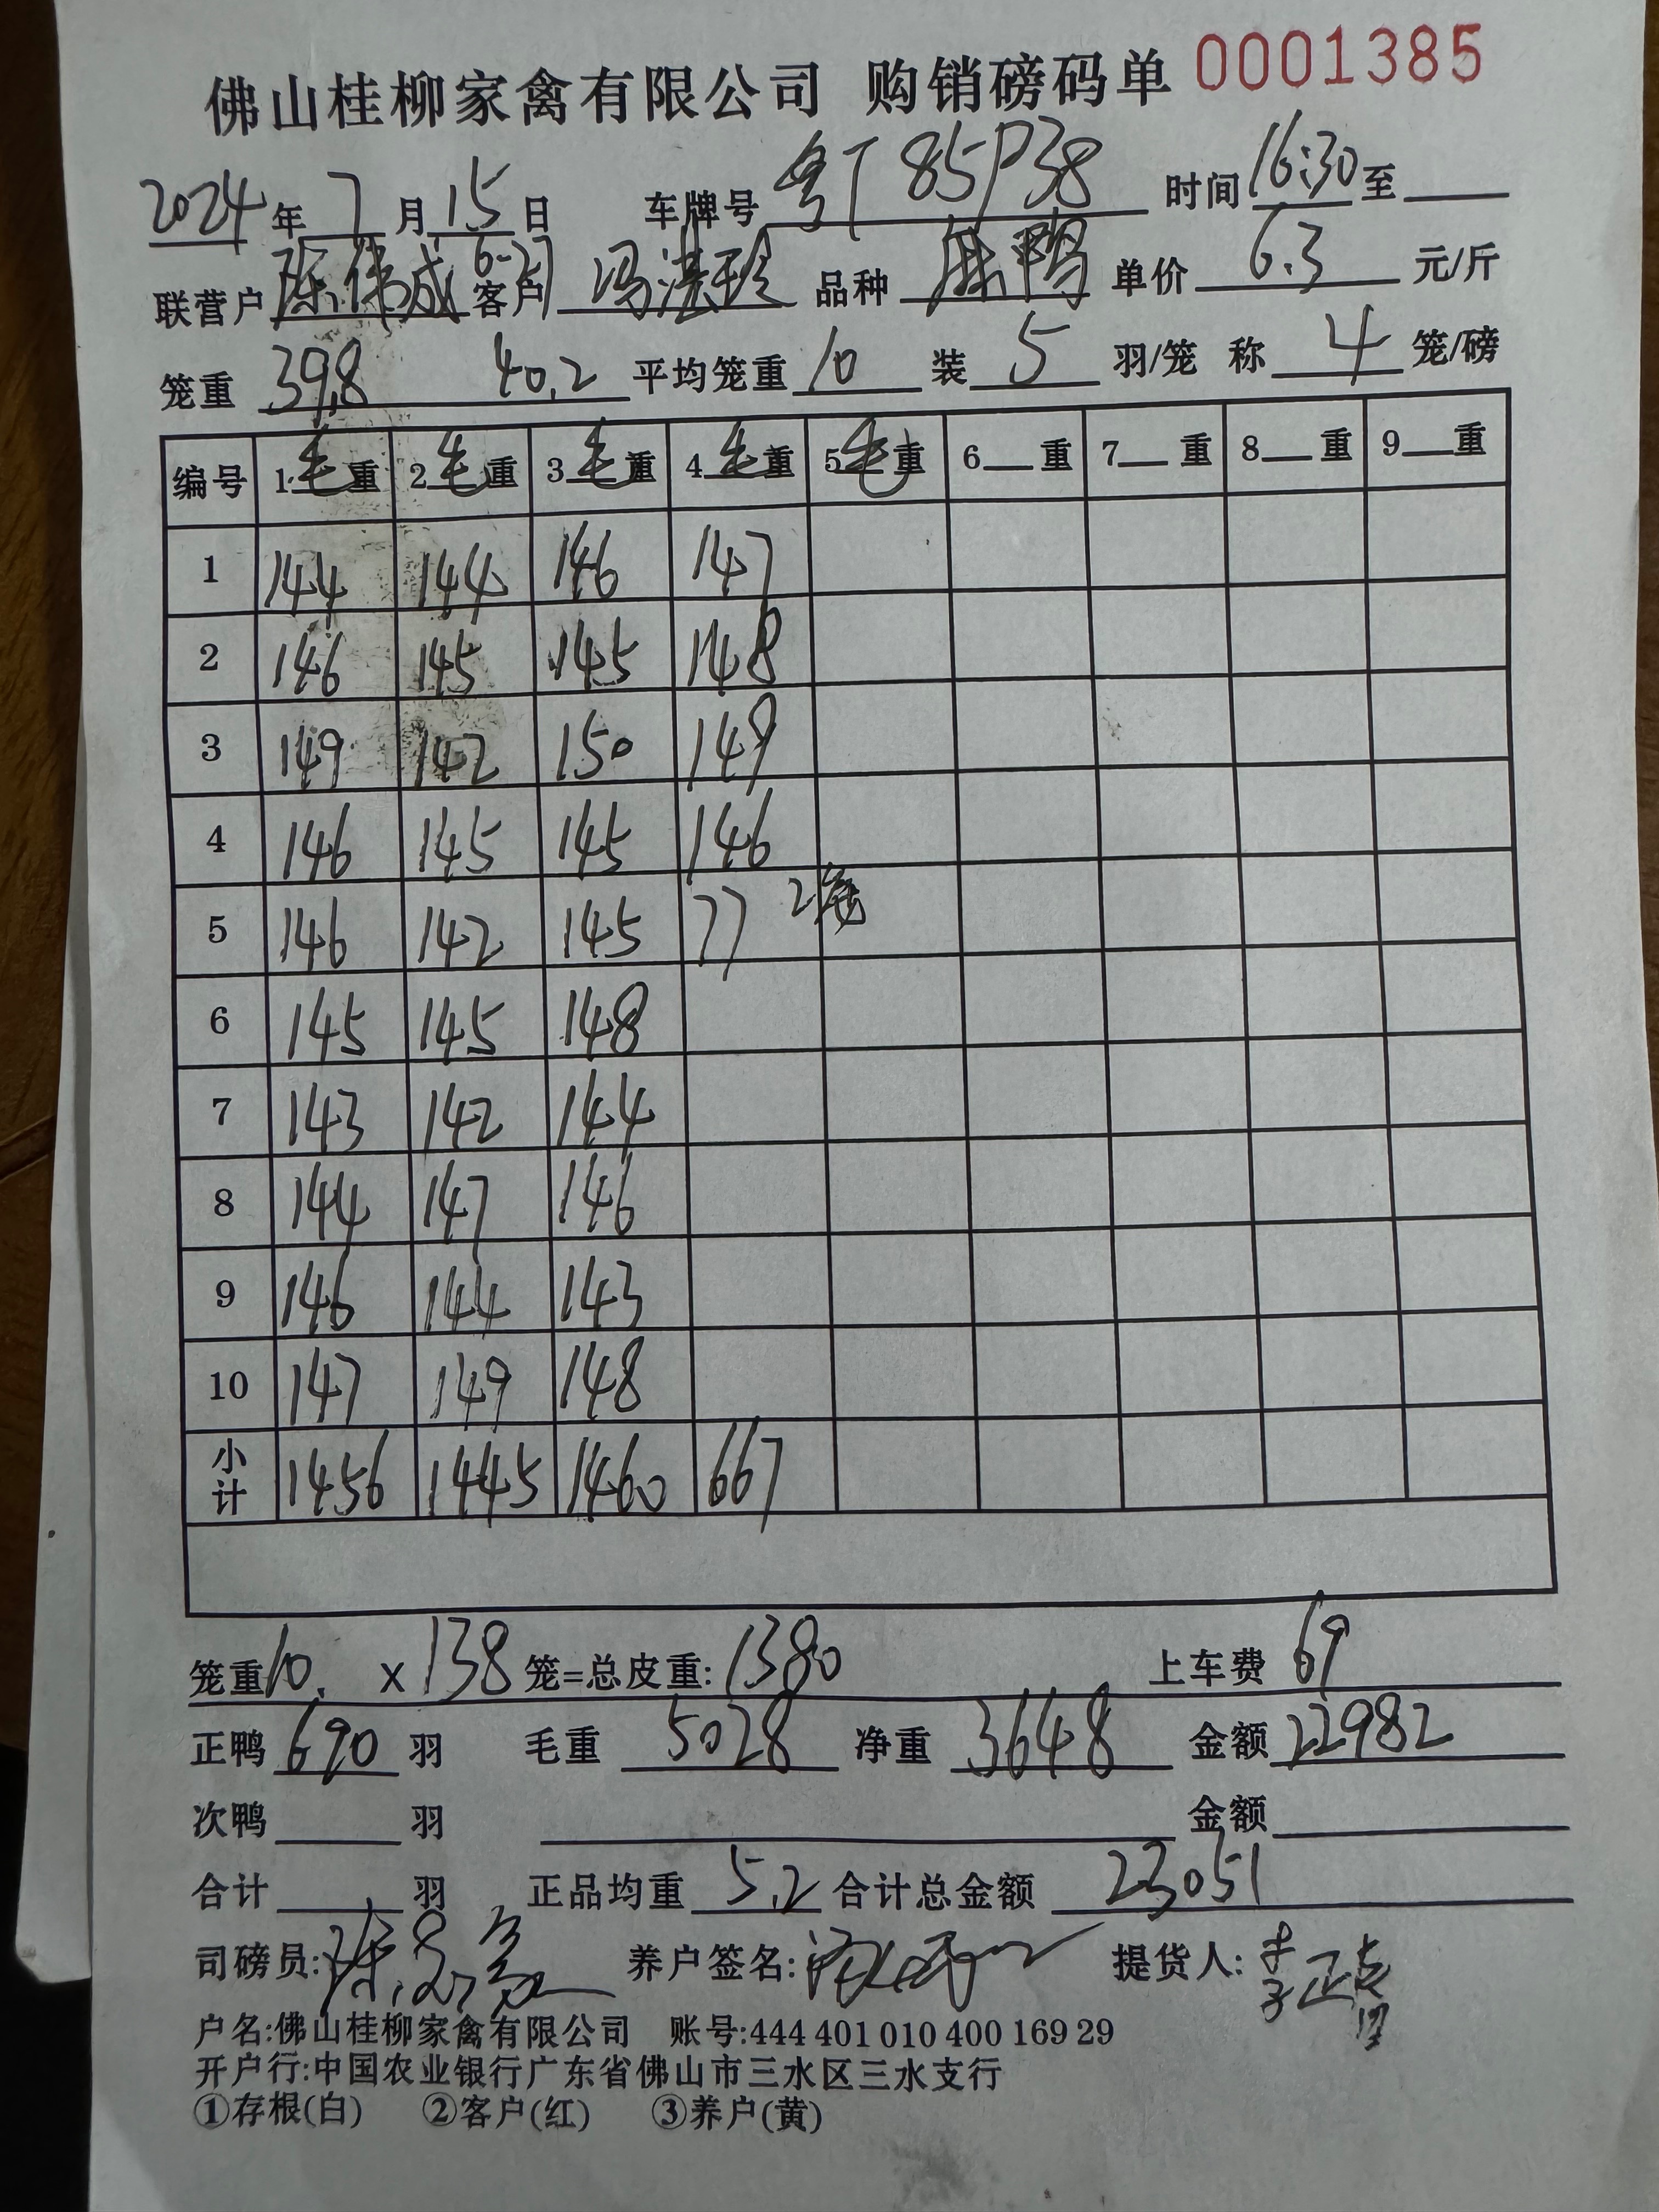 佛山桂柳家禽有限公司 购销磅码单 0001385
2024年7月15日 车牌号 粤T 85P38 时间16:30至
联营户 陈伟成 6-7 客户 冯洪珍 品种 麻鸭 单价 6.3 元/斤
笼重 39.8 40.2 平均笼重 10 装 5 羽/笼 称 4 笼/磅
编号 1毛重 2毛重 3毛重 4毛重 5毛重 6 重 7 重 8 重 9 重
1 144 144 146 147
2 146 145 145 148
3 149 142 150 149
4 146 145 145 146
5 146 142 145 77 2笼
6 145 145 148
7 143 142 144
8 144 147 146
9 146 144 143
10 147 149 148
小计 1456 1445 1460 667
笼重10. x 138 笼=总皮重:1380 上车费 69
正鸭 690 羽 毛重 5028 净重 3648 金额 22982
次鸭 羽 金额
合计 羽 正品均重 5.2 合计总金额 23051
司磅员: 养户签名: 提货人:
户名:佛山桂柳家禽有限公司 账号:444 401 010 400 169 29
开户行:中国农业银行广东省佛山市三水区三水支行
①存根(白) ②客户(红) ③养户(黄)